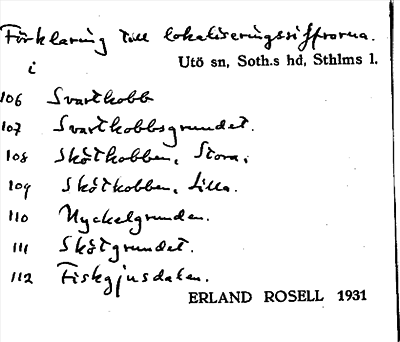 Förklaring till lokaliseringssiffrorna.
i Utö sn, Soth.s hd, Sthlms l.
106 Svartkobb
107 Svartkobbsgrundet.
108 Skötkobben, Stora.
109 Skötkobben, Lilla.
110 Nyckelgrunden.
111 Skötgrundet.
112 Fiskgjusdalen.
ERLAND ROSELL 1931